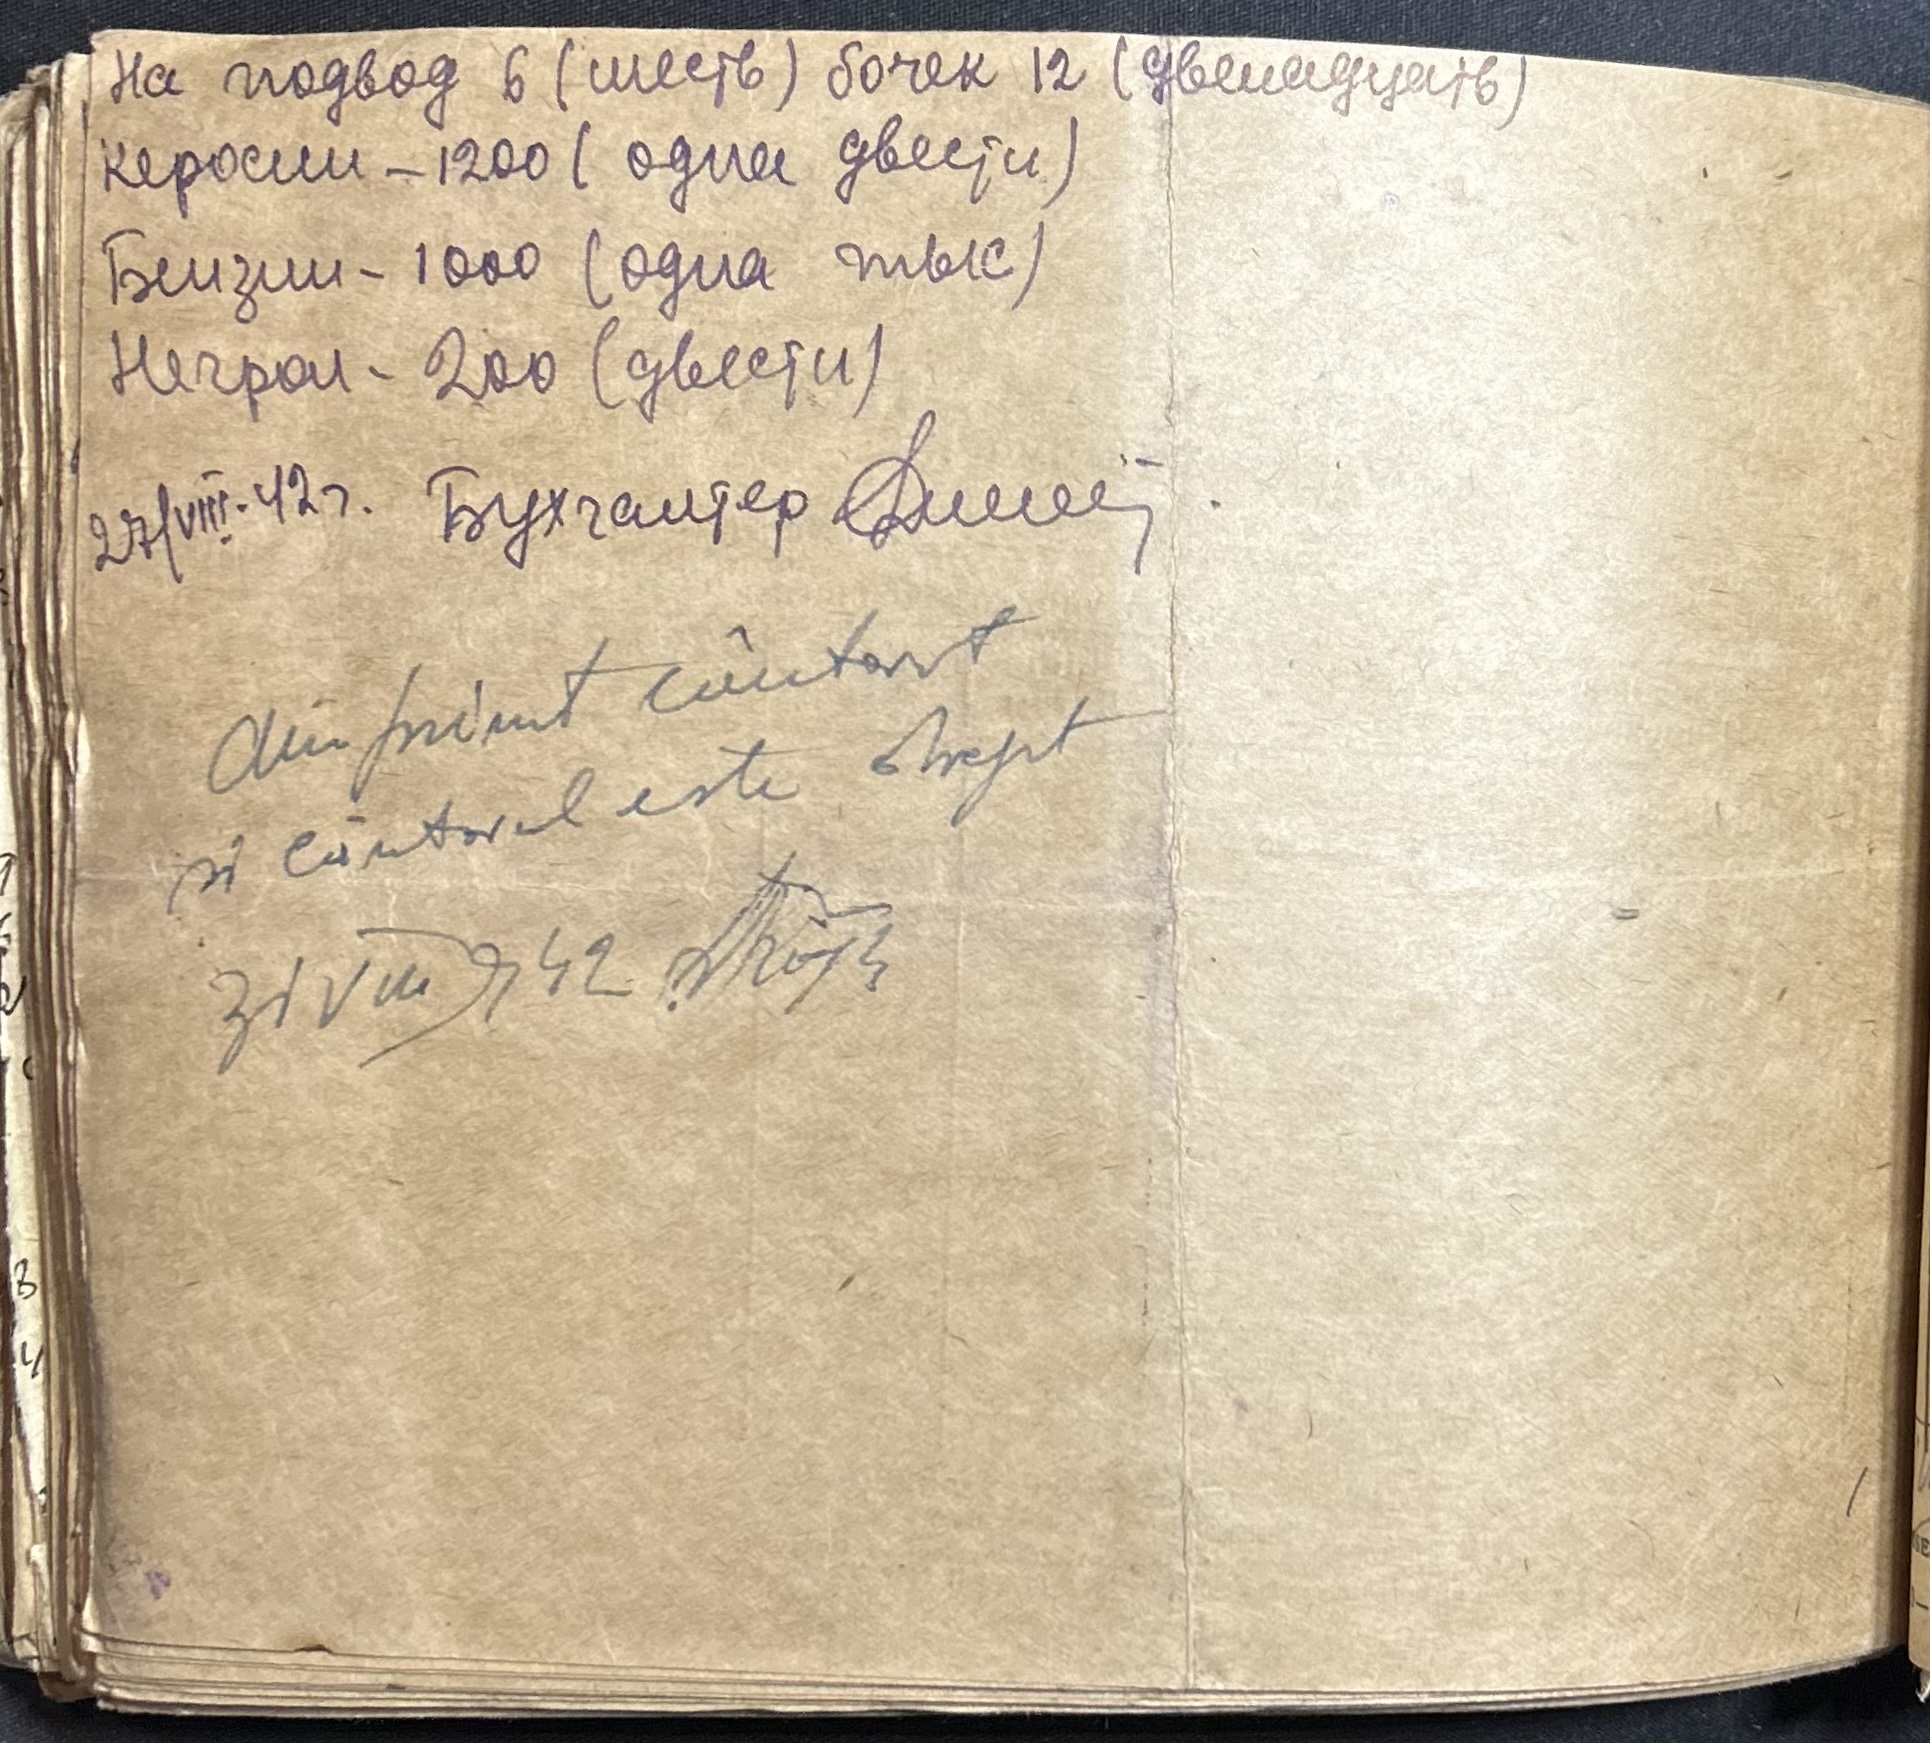 На подвод 6 (шесть) бочек 12 (двенадцать)
Керосин - 1200 (одна двести)
Бензин - 1000 (одна тыс)
Негрол - 200 (двести)
27/VIII-42 г. Бухгалтер
Am primit cântarit
si cântarul este drept
31 VIII 942